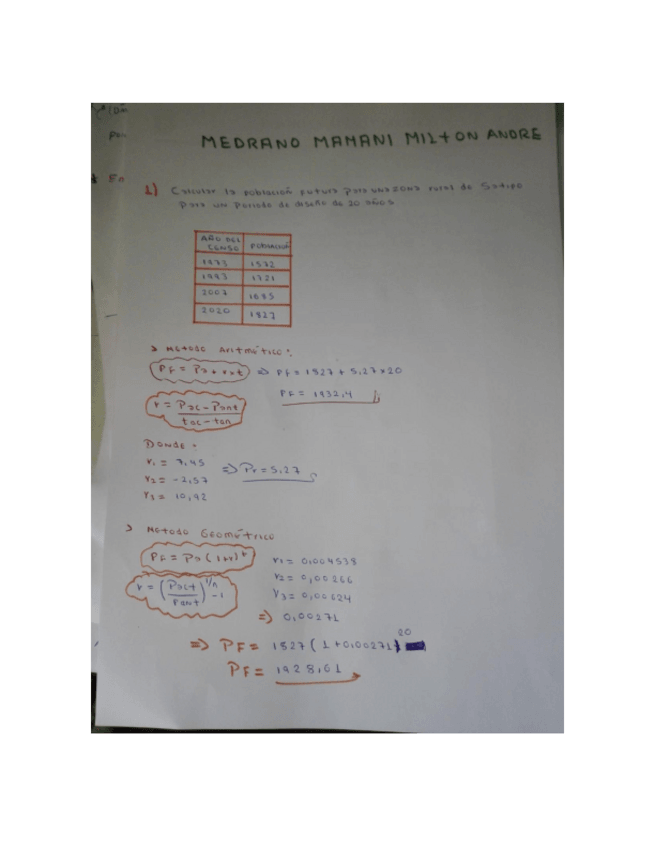 MEDRANO MAMANI MILTON ANDRE
En
1) Calcular la población futura para una zona rural de Satipo
para un periodo de diseño de 20 años
AÑO DEL CENSO POBLACIÓN
1973 1572
1993 1721
2007 1685
2020 1827
> Metodo Aritmético:
PF = Pa + r x t => PF = 1827 + 5,27 x 20
PF = 1932,4
r = Pac - Pant / tac - tan
DONDE:
r1 = 7,45
r2 = -2,57 => Pr = 5,27
r3 = 10,92
> Metodo Geométrico
PF = Pa (1+r)^t r1 = 0,004538
r = (Pact / Pant)^1/n - 1 r2 = 0,00266
r3 = 0,00624
=> 0,00271
=> PF = 1827 (1 + 0,00271)^20
PF = 1928,61